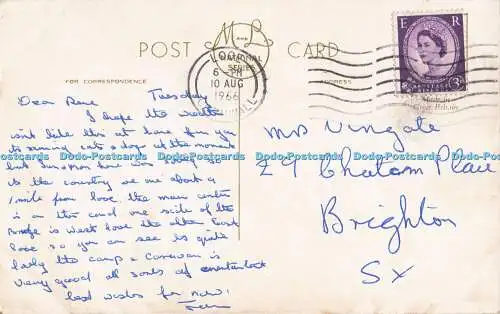 POST M.L. CARD
NATIONAL
SERIES
FOR CORRESPONDENCE
ADDRESS
LOOE
6 - PM
10 AUG
1966
CORNWALL
E R
3D
Made in
Great Britain
Dear Tuesday
I hope the weather
isnt like this at home for you
its raining cats & dogs at the moment
but
to the country we are about a
1 mile from Looe the main centre
is on this and one side of the
Bridge is West Looe the other East
Looe so you can see its quite
the camp & Caravan is
very good all sorts of
best wishes for now!
Mrs Wingate
29 Chatham Place
Brighton
Sx
Dodo-Postcards Dodo-Postcards Dodo-Postcards Dodo-Postcards Dodo-Postcards Dodo-Postcards